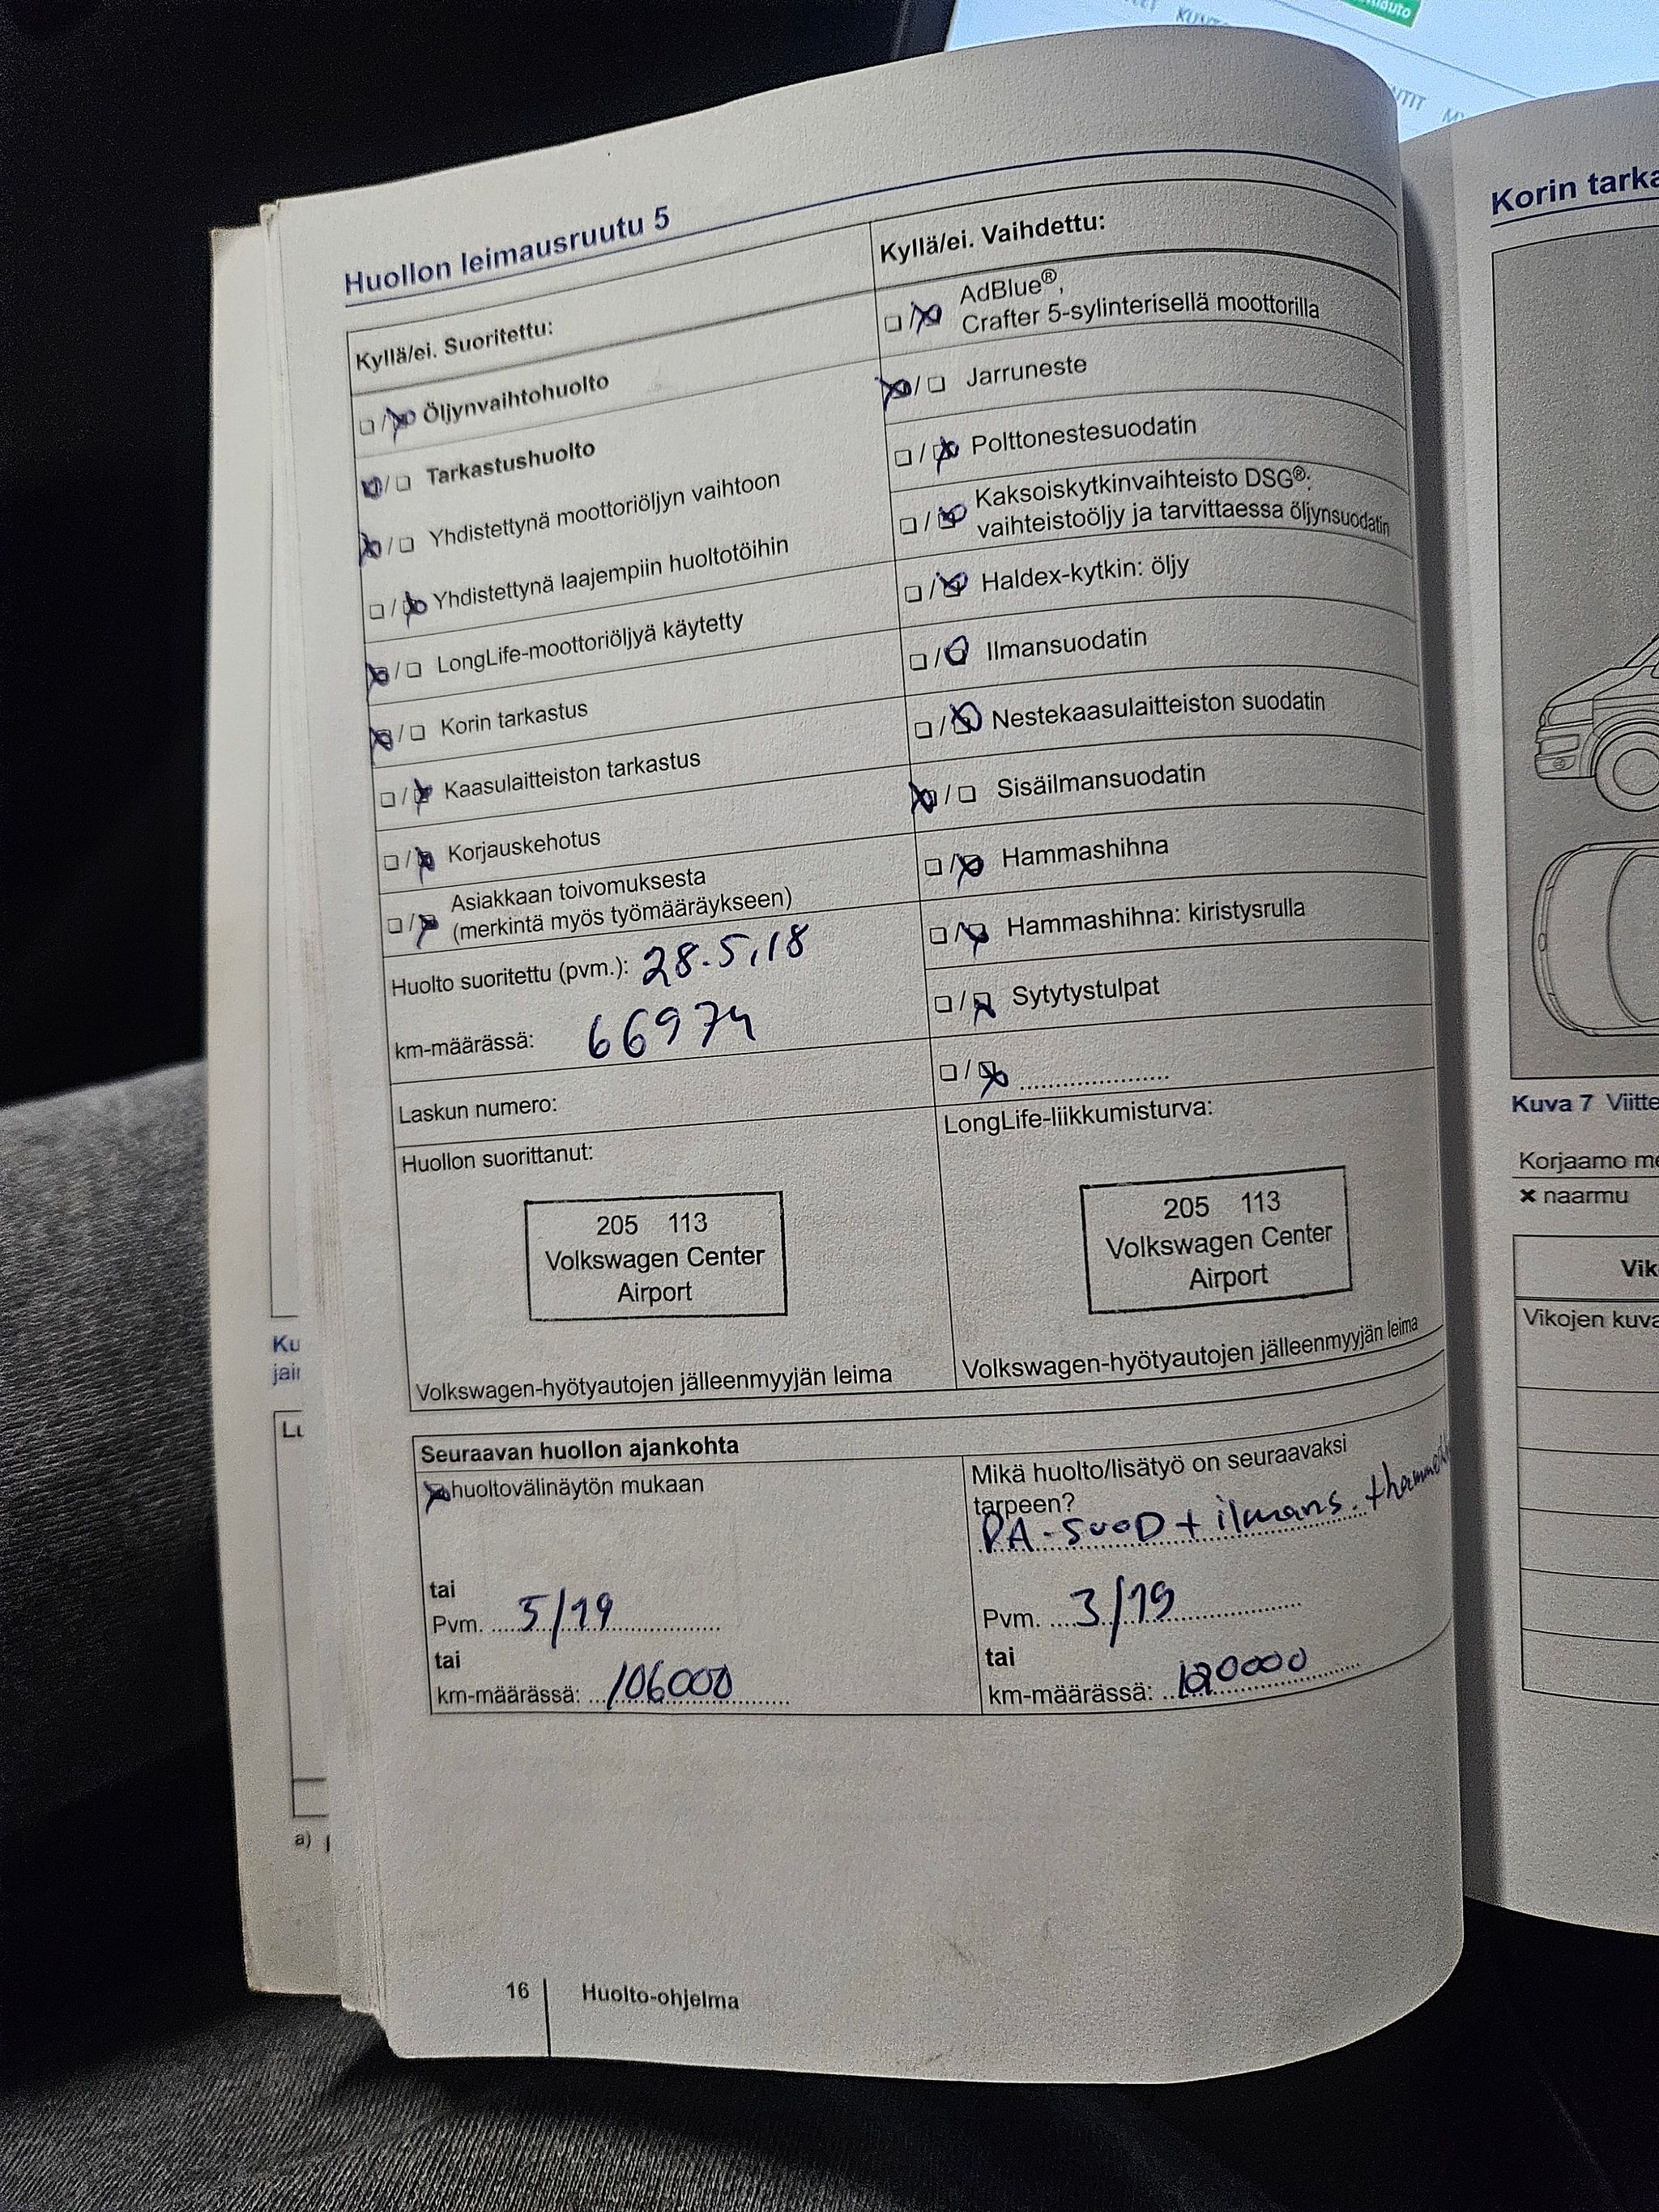 Huollon leimausruutu 5
Kyllä/ei. Suoritettu:
☐/☒ Öljynvaihtohuolto
☒/☐ Tarkastushuolto
☒/☐ Yhdistettynä moottoriöljyn vaihtoon
☐/☒ Yhdistettynä laajempiin huoltotöihin
☒/☐ LongLife-moottoriöljyä käytetty
☒/☐ Korin tarkastus
☐/☒ Kaasulaitteiston tarkastus
☐/☒ Korjauskehotus
☐/☒ Asiakkaan toivomuksesta
(merkintä myös työmääräykseen)
Huolto suoritettu (pvm.): 28.5.18
km-määrässä: 66974
Laskun numero:
Huollon suorittanut:
205 113
Volkswagen Center
Airport
Volkswagen-hyötyautojen jälleenmyyjän leima
Kyllä/ei. Vaihdettu:
☐/☒ AdBlue®,
Crafter 5-sylinterisellä moottorilla
☒/☐ Jarruneste
☐/☒ Polttonestesuodatin
☐/☒ Kaksoiskytkinvaihteisto DSG®:
vaihteistoöljy ja tarvittaessa öljynsuodatin
☐/☒ Haldex-kytkin: öljy
☐/☒ Ilmansuodatin
☐/☒ Nestekaasulaitteiston suodatin
☒/☐ Sisäilmansuodatin
☐/☒ Hammashihna
☐/☒ Hammashihna: kiristysrulla
☐/☒ Sytytystulpat
☐/☒ ......................
LongLife-liikkumisturva:
205 113
Volkswagen Center
Airport
Volkswagen-hyötyautojen jälleenmyyjän leima
Seuraavan huollon ajankohta
☒ huoltovälinäytön mukaan
tai
Pvm. 5/19
tai
km-määrässä: 106000
Mikä huolto/lisätyö on seuraavaksi
tarpeen?
PA-suoD + ilmans.
Pvm. 3/19
tai
km-määrässä: 120000
16 Huolto-ohjelma
Korin tarka
Kuva 7 Viitte
Korjaamo me
× naarmu
Vik
Vikojen kuva
Ku
jair
a)